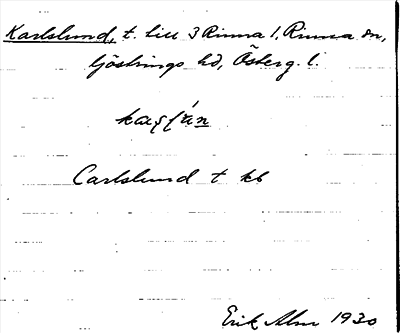 Karlslund, t. till 3 Rinna 1, Rinna sn,
Göstrings hd, Österg. l.
Carlslund t kb
Erik Alm 1930